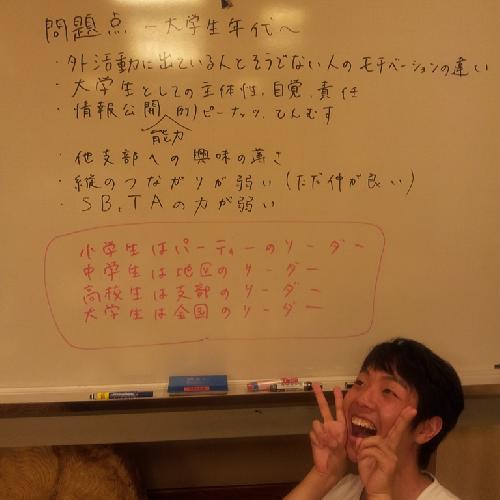 問題点 ー大学生年代〜
・外活動に出ている人とそうでない人のモチベーションの違い
・大学生としての主体性、自覚、責任
・情報公開 的)ピーナッツ、てんむす
能力
・他支部への興味の薄さ
・縦のつながりが弱い(ただ仲が良い)
・SB、TAの力が弱い
小学生はパーティーのリーダー
中学生は地区のリーダー
高校生は支部のリーダー
大学生は全国のリーダー